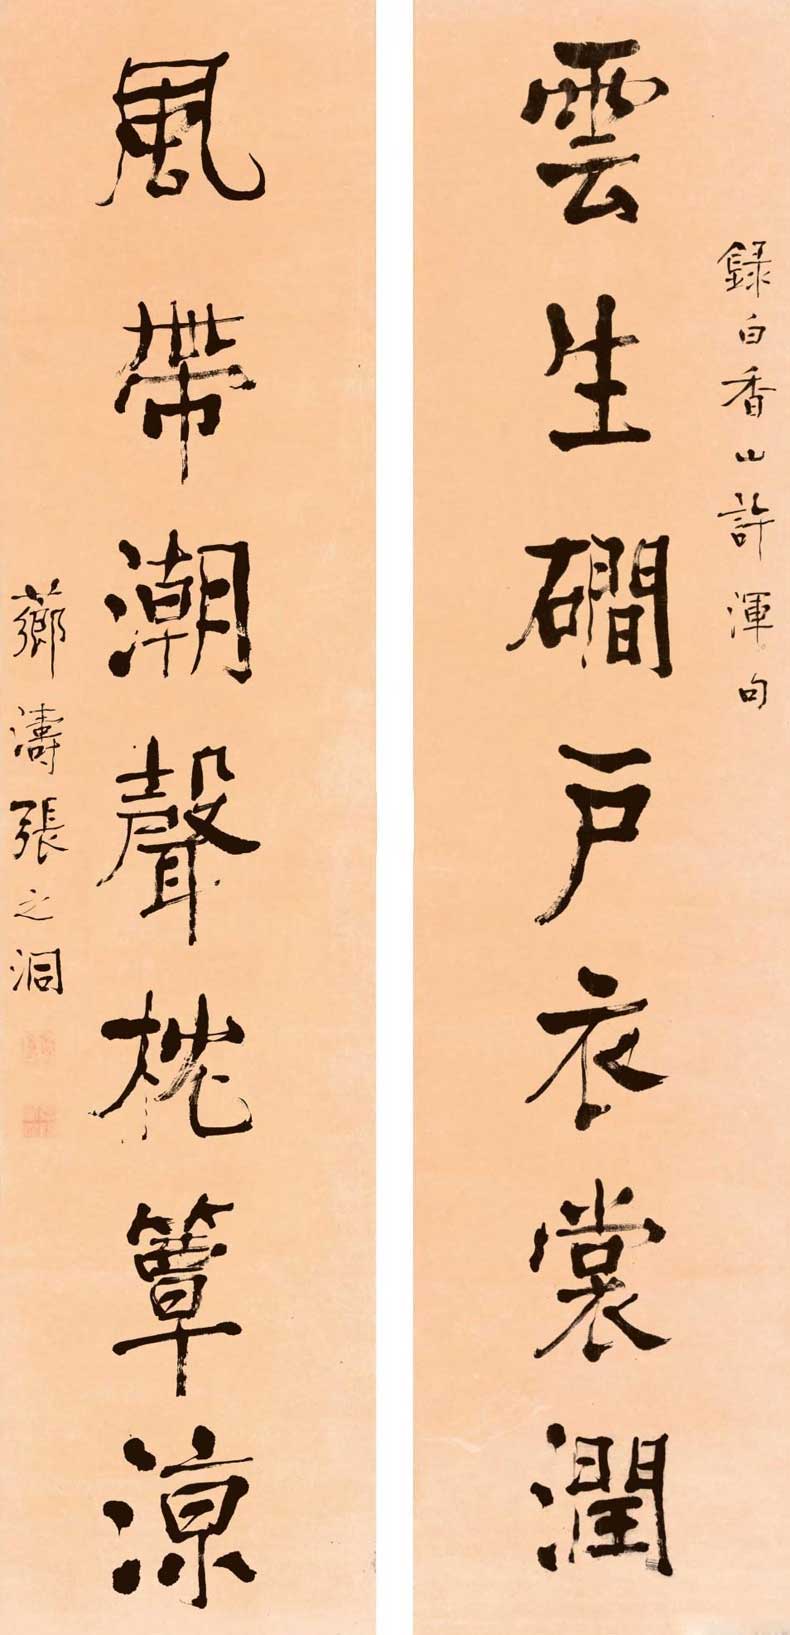 錄白香山許渾句
雲生磵戶衣裳潤
風帶潮聲枕簟涼
薌濤張之洞